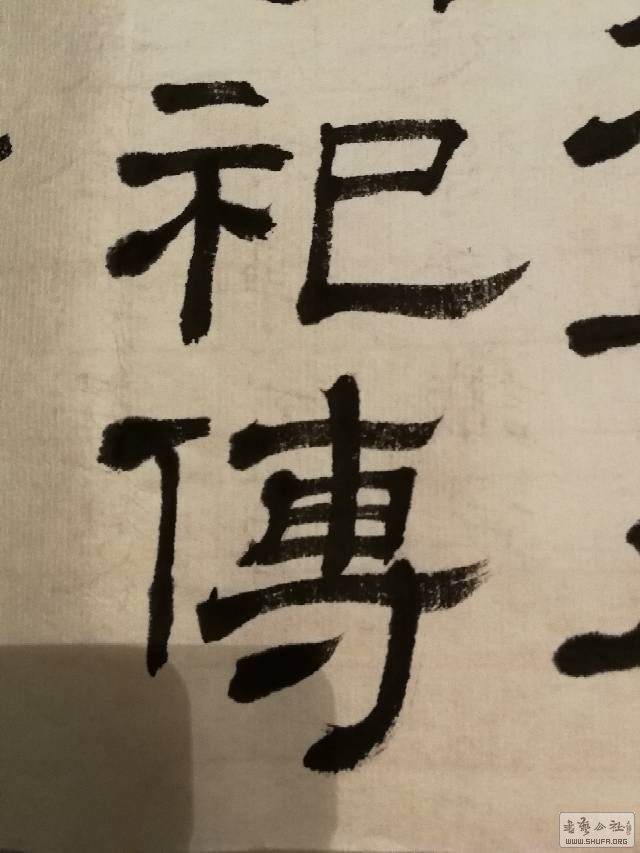 祀傳
書藝公社
WWW.SHUFA.ORG